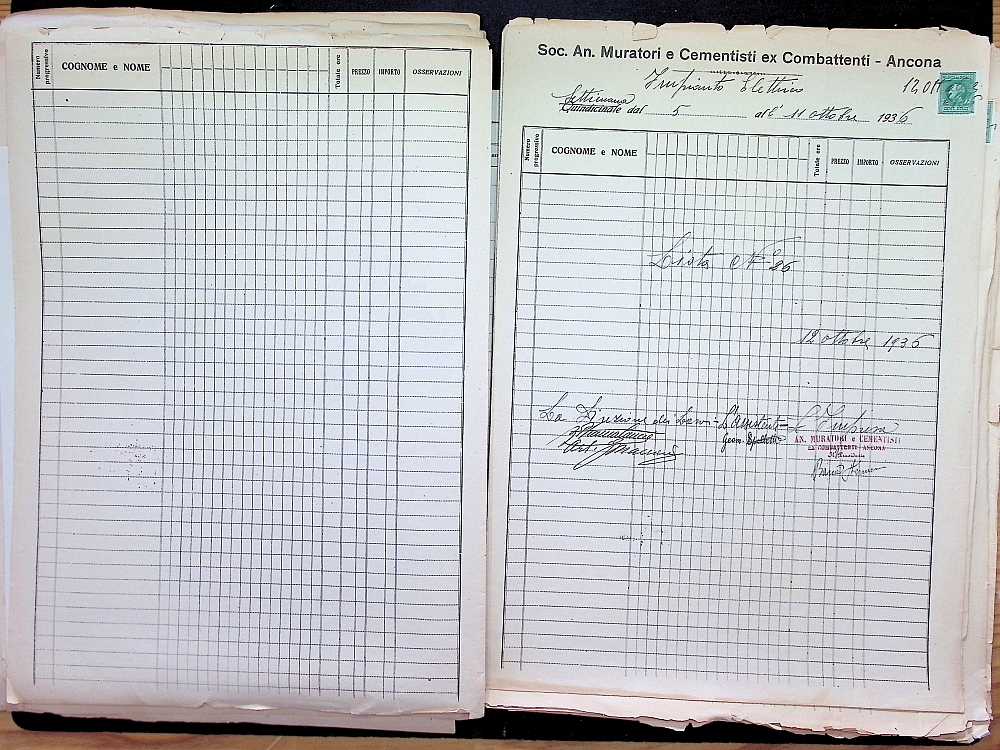 Numero progressivo COGNOME e NOME Totale ore PREZZO IMPORTO OSSERVAZIONI
Soc. An. Muratori e Cementisti ex Combattenti - Ancona
Impianto Elettrico
Settimana
Quindicinale dal 5 al 11 ottobre 1936
Numero progressivo COGNOME e NOME Totale ore PREZZO IMPORTO OSSERVAZIONI
Lista N° 26
12 ottobre 1936
La Direzione dei Lavori L'Assistente L'Impresa
Geom.
AN. MURATORI e CEMENTISTI
EX COMBATTENTI - ANCONA
Il Presidente